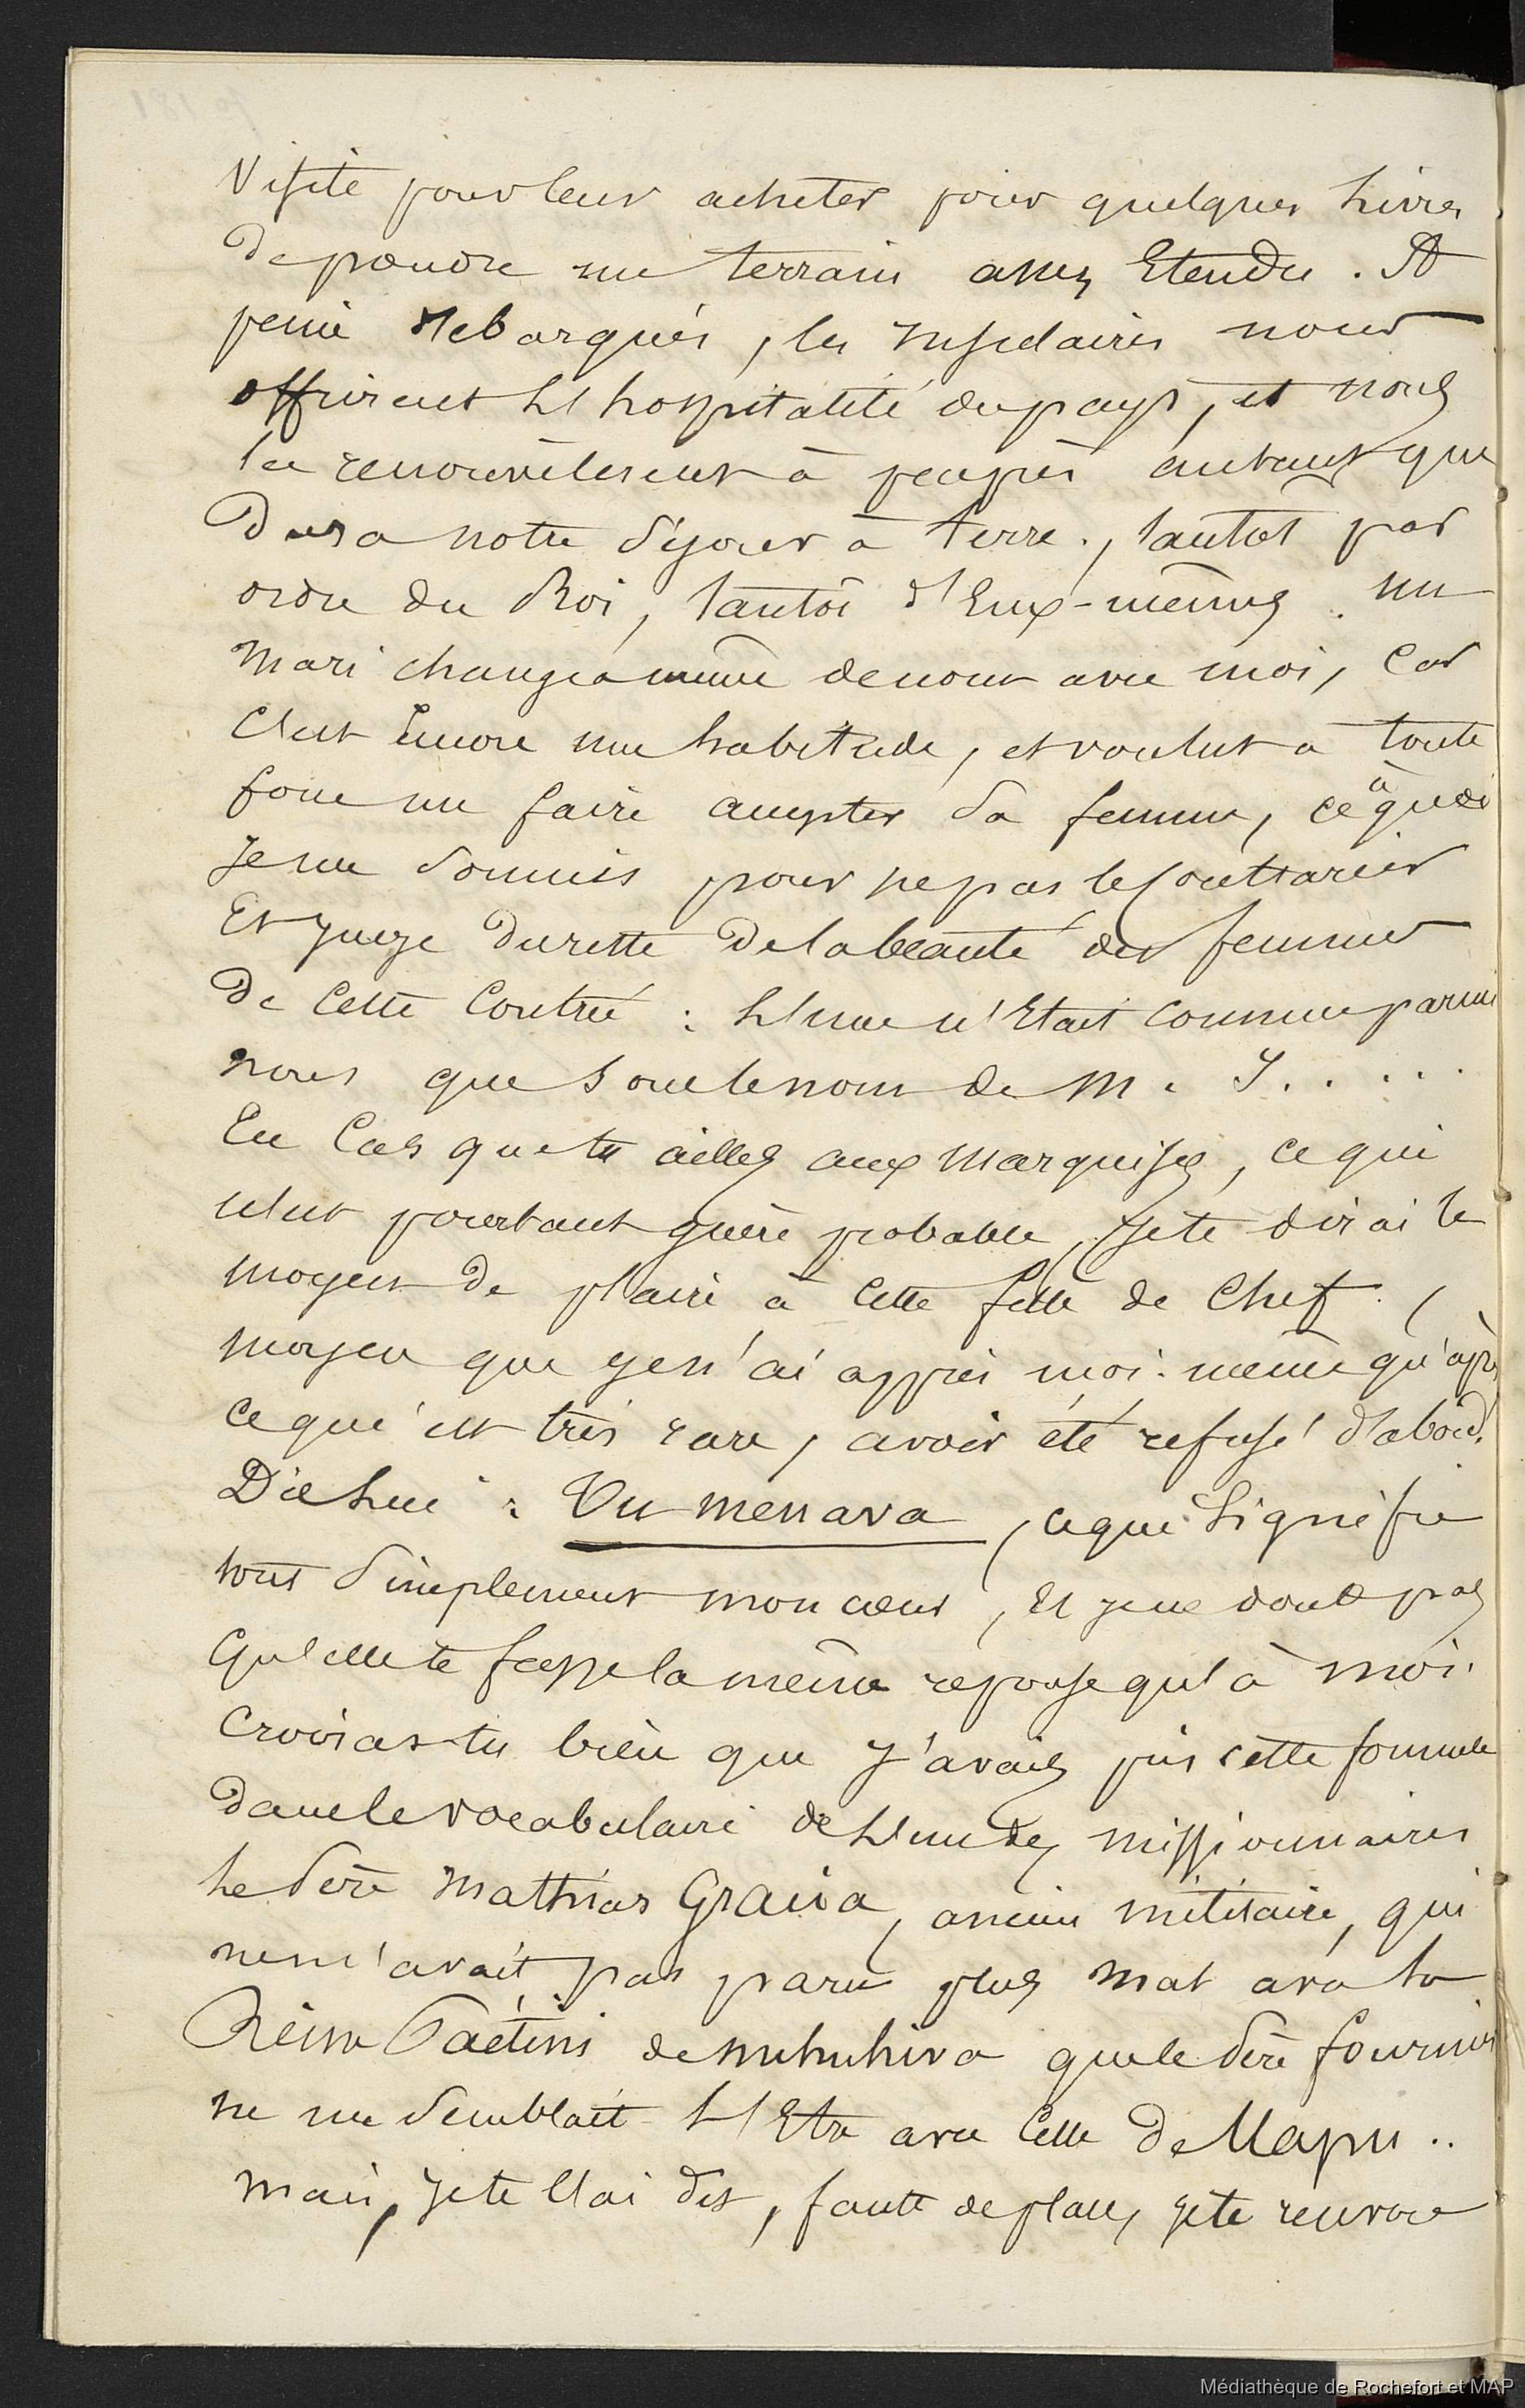 Visite pour leur acheter pour quelques livres
de poudre un terrain assez Etendu. A
peine debarqués, les Insulaires nous
offrirent L'hospitalité du pays, et nous
la renouvèlerent à peuprès autant que
dura notre séjour à terre, tantot par
ordre du Roi, tantôt d'Eux-mêmes. un
mari changea même de nom avec moi, Car
C'est Encore une habitude, et voulut à toute
force me faire accepter sa femme, ce à quoi
Je me soumis pour ne pas le contrarier
Et Juge du reste de la beauté des femmes
de Cette Contrée : L'une n'Etait connue parmi
nous que sous le nom de M. J.....
En Cas que tu ailles aux Marquises, ce qui
n'est pourtant guère probable, Je te dirai le
moyen de plaire à Cette fille de Chef. (
moyen que je n'ai appris moi-même qu'après
ce qui est très rare, avoir été refusé d'abord.
Dis Lui : Vu menava, ce qui Signifie
tout simplement mon cœur, Et je ne doute pas
Qu'elle te fasse la même réponse qu'à moi.
Croirais-tu bien que J'avais pris cette formule
dans le vocabulaire de L'un des missionnaires
Le Père Matthias Gracia, ancien militaire, qui
ne m'avait pas paru plus mal avec la
Reine Paétini de nuhuhiva que le Père fournier
ne me semblait L'Etre avec Celle de Uapu..
mais, Je te l'ai dit, faute de place, je te renvoie
Médiathèque de Rochefort et MAP